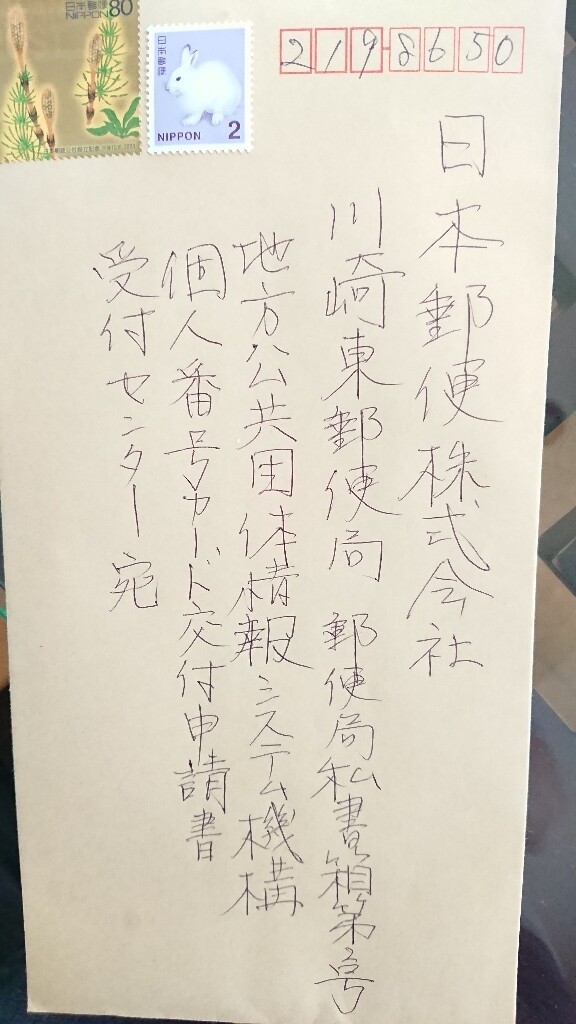 日本郵便 NIPPON 80
日本郵便
NIPPON 2
2198650
日本郵便株式会社
川崎東郵便局 郵便局私書箱第号
地方公共団体情報システム機構
個人番号カード交付申請書
受付センター宛